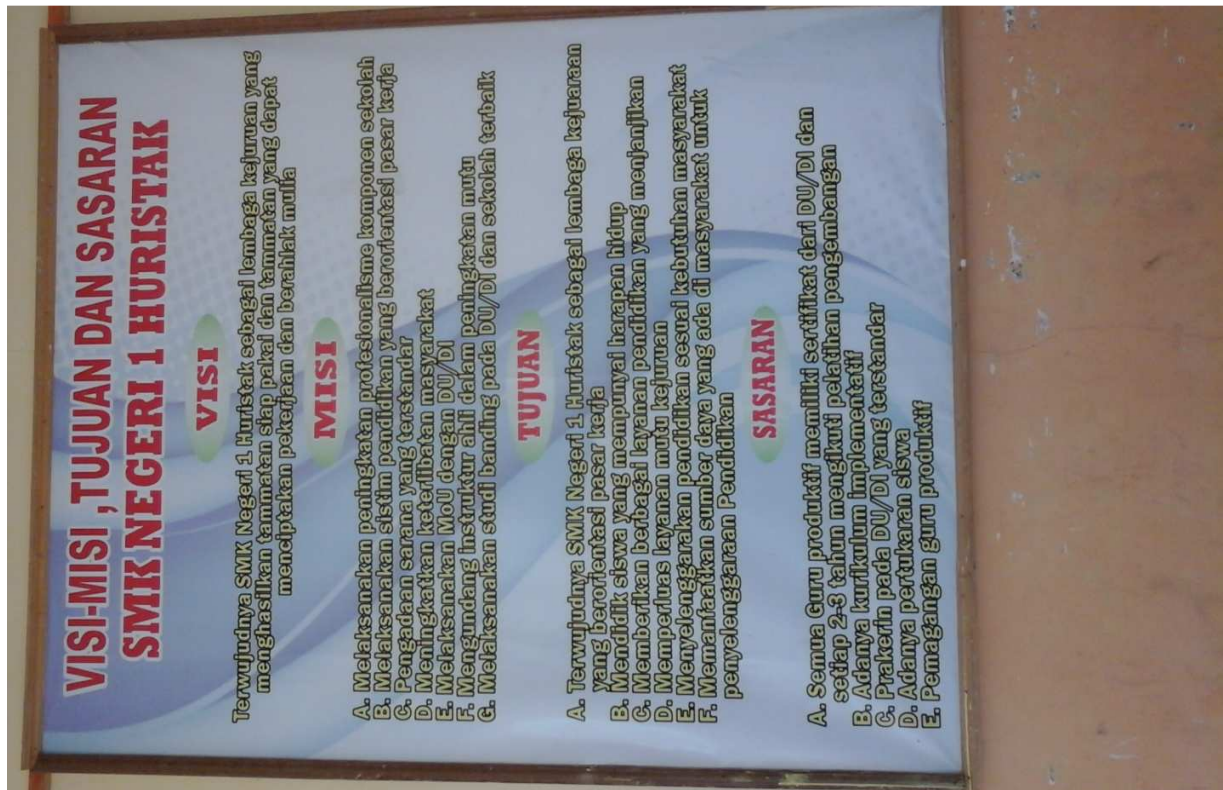 VISI-MISI ,TUJUAN DAN SASARAN
SMK NEGERI 1 HURISTAK
VISI
Terwujudnya SMK Negeri 1 Huristak sebagai lembaga kejuruan yang
menghasilkan tamatan siap pakai dan tammatan yang dapat
menciptakan pekerjaan dan berahlak mulia
MISI
A. Melaksanakan peningkatan profesionalisme komponen sekolah
B. Melaksanakan sistim pendidikan yang berorientasi pasar kerja
C. Pengadaan sarana yang terstandar
D. Meningkatkan keterlibatan masyarakat
E. Melaksanakan MoU dengan DU/DI
F. Mengundang instruktur ahli dalam peningkatan mutu
G. Melaksanakan studi banding pada DU/DI dan sekolah terbaik
TUJUAN
A. Terwujudnya SMK Negeri 1 Huristak sebagai lembaga kejuaraan
yang berorientasi pasar kerja
B. Mendidik siswa yang mempunyai harapan hidup
C. Memberikan berbagai layanan pendidikan yang menjanjikan
D. Memperluas layanan mutu kejuruan
E. Menyelenggarakan pendidikan sesuai kebutuhan masyarakat
F. Memanfaatkan sumber daya yang ada di masyarakat untuk
penyelenggaraan Pendidikan
SASARAN
A. Semua Guru produktif memiliki sertifikat dari DU/DI dan
setiap 2-3 tahun mengikuti pelatihan pengembangan
B. Adanya kurikulum implementatif
C. Prakerin pada DU/DI yang terstandar
D. Adanya pertukaran siswa
E. Pemagangan guru produktif